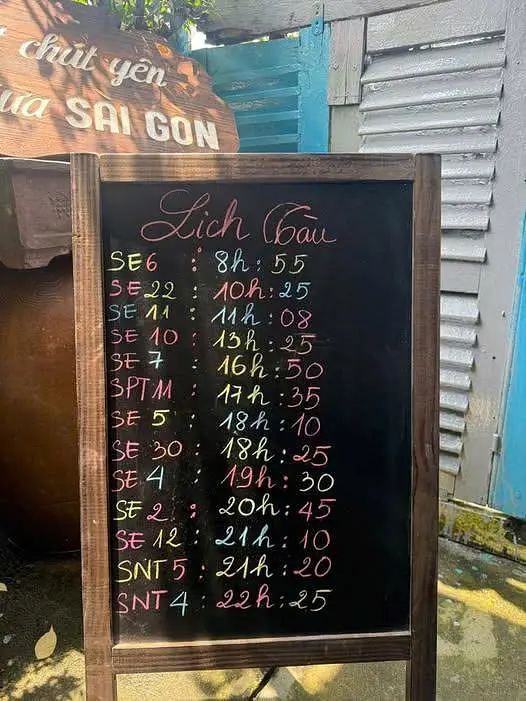 chút yên
ưa SÀI GÒN
Lịch Tàu
SE6 : 8h:55
SE 22 : 10h:25
SE 11 : 11h:08
SE 10 : 13h:25
SE 7 : 16h:50
SPT11 : 17h:35
SE 5 : 18h:10
SE 30 : 18h:25
SE 4 : 19h:30
SE 2 : 20h:45
SE 12 : 21h:10
SNT 5 : 21h:20
SNT 4 : 22h:25